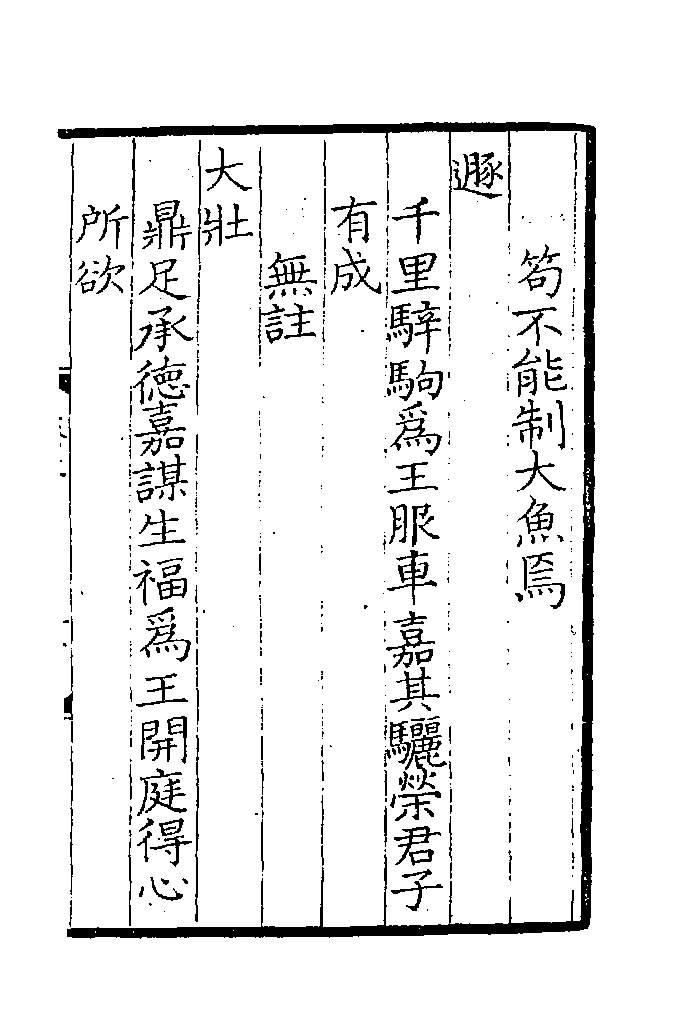 笱不能制大魚焉
遯
千里騂駒爲王服車嘉其驪榮君子
有成
無註
大壯
鼎足承德嘉謀生福爲王開庭得心
所欲